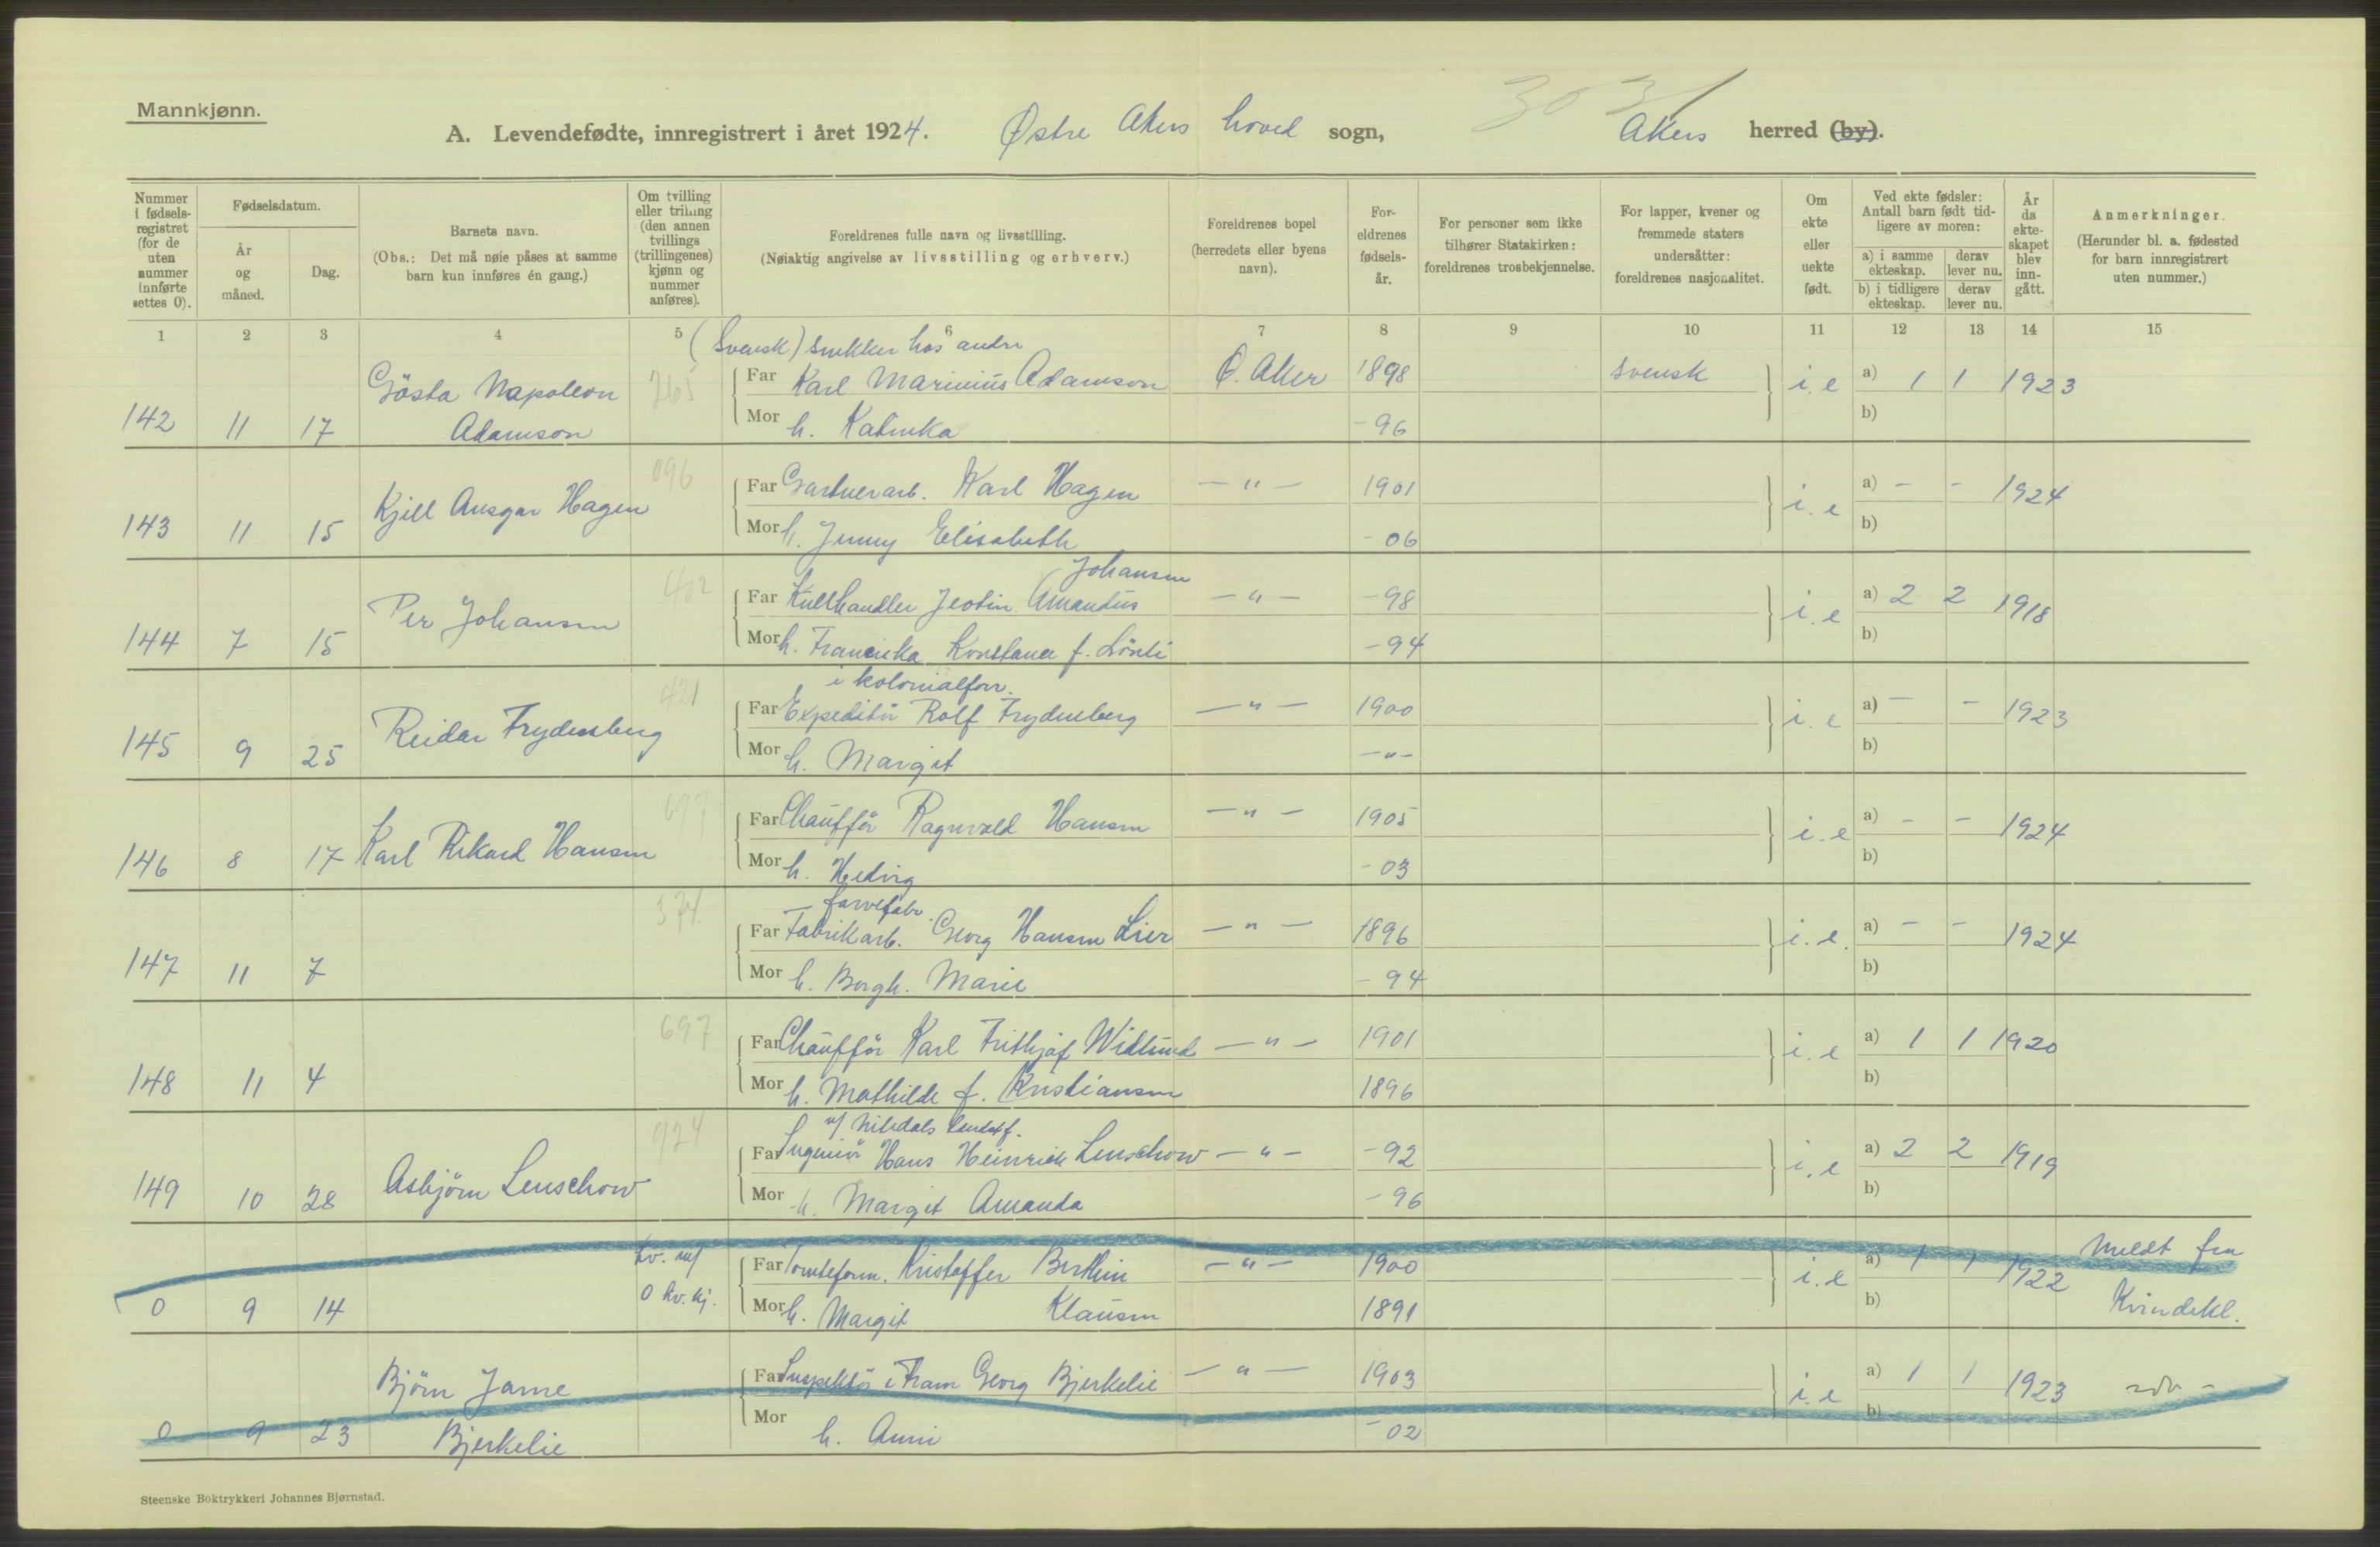 Mannkjønn.
3031
A. Levendefødte, innregistrert i året 1924. Østre Akers hoved sogn, Akers herred (by).
Nummer i fødselsregistret (for de uten nummer innførte settes 0).
Fødselsdatum.
År og måned.
Dag.
Barnets navn.
(Obs.: Det må nøie påses at samme barn kun innføres én gang.)
Om tvilling eller trilling (den annen tvillings (trillingenes) kjønn og nummer anføres).
Foreldrenes fulle navn og livsstilling.
(Nøiaktig angivelse av livsstilling og erhverv.)
Foreldrenes bopel (herredets eller byens navn).
Foreldrenes fødselsår.
For personer som ikke tilhører Statskirken: foreldrenes trosbekjennelse.
For lapper, kvener og fremmede staters undersåtter: foreldrenes nasjonalitet.
Om ekte eller uekte født.
Ved ekte fødsler: Antall barn født tidligere av moren:
a) i samme ekteskap. derav lever nu.
b) i tidligere ekteskap. derav lever nu.
År da ekteskapet blev inngått.
Anmerkninger.
(Herunder bl. a. fødested for barn innregistrert uten nummer.)
1 2 3 4 5 6 7 8 9 10 11 12 13 14 15
(Svensk) snekker hos andre
142 11 17 Gösta Napoleon Adamson 265 Far Karl Marinius Adamson Ø. Aker 1898 svensk i. e a) 1 1 1923
Mor h. Katinka - 96 b)
143 11 15 Kjell Ansgar Hagen 096 Far Gartnerarb. Karl Hagen — " — 1901 i. e a) - - 1924
Mor h. Jenny Elisabeth - 06 b)
Johansen
144 7 15 Per Johansen 402 Far Kullhandler Jestin Amandus — " — - 98 i. e a) 2 2 1918
Mor h. Franciska Konstance f. Lönli - 94 b)
i kolonialforr.
145 9 25 Reidar Frydenberg 421 Far Expeditör Rolf Frydenberg — " — 1900 i. e a) - - 1923
Mor h. Margit — " — b)
146 8 17 Karl Rikard Hansen 697 Far Chaufför Ragnvald Hansen — " — 1905 i. e a) - - 1924
Mor h. Hedvig - 03 b)
farvefabr.
147 11 7 374 Far Fabrikarb. Georg Hansen Lier — " — 1896 i. e. a) - - 1924
Mor h. Borgh. Marie - 94 b)
148 11 4 697 Far Chauffør Karl Frithjof Widlund — " — 1901 i. e a) 1 1 1920
Mor h. Mathilde f. Kristiansen 1896 b)
v/ Nitedals
149 10 28 Asbjörn Lenschow 924 Far Ingeniör Hans Heinrich Lenschow — " — - 92 i. e a) 2 2 1919
Mor h. Margit Amanda - 96 b)
0 9 14 tv. m/ 0 kv. kj. Far Tomteform. Kristoffer Berthin — " — 1900 i. e a) 1 1 1922 Meldt fra
Mor h. Margit Klausen 1891 b) Kvindekl.
0 9 23 Björn Jarne Bjerkelie Far Inspektör i Fram Georg Bjerkelie — " — 1903 i. e a) 1 1 1923 - do -
Mor h. Anni - 02 b)
Steenske Boktrykkeri Johannes Bjørnstad.